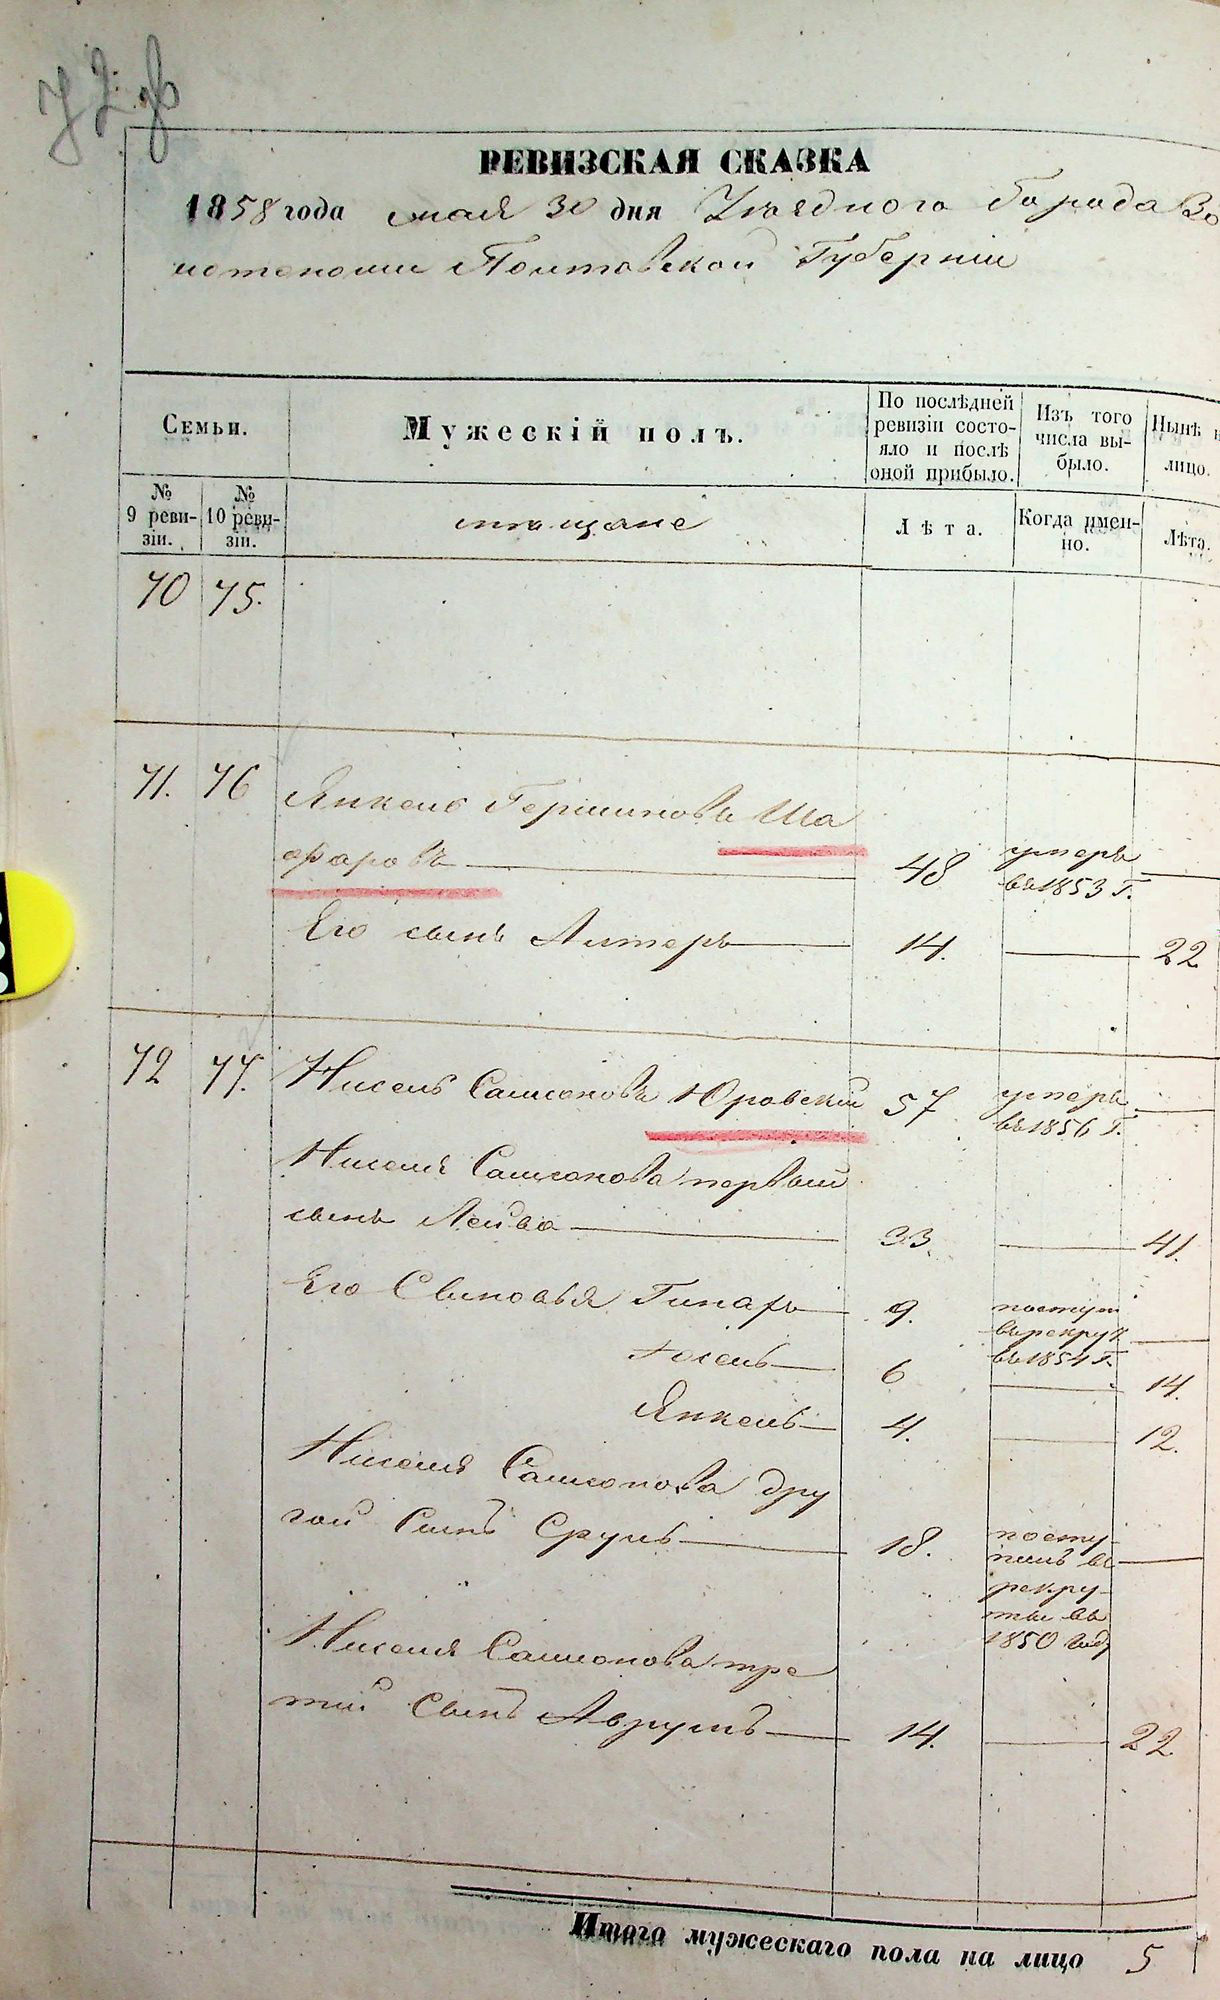 72 об
РЕВИЗСКАЯ СКАЗКА
1858 года мая 30 дня Уѣзднаго Города Зо
лотоноши Полтавской Губерніи
Семьи.
Мужескій полъ.
По послѣдней ревизіи состо-
яло и послѣ
оной прибыло.
Изъ того
числа вы-
было.
Нынѣ н
лицо.
№
9 реви-
зіи.
№
10 реви-
зіи.
мѣщане
Лѣта.
Когда имен-
но.
Лѣта.
70 75.
71. 76 Янкель Гершиновъ Ша
фаровъ 48 умеръ
въ 1853 г.
Его сынъ Алтеръ 14. 22
72 77. Нисель Самсоновъ Юровскій 57 умеръ
въ 1856 г.
Ниселя Самсонова первый
сынъ Лейба 33. 41.
Его Сыновья 9. поступ
въ рекрут
въ 1854 г.
Іосель 6 14.
Янкель 4. 12.
Ниселя Самсонова дру
гой сынъ Сруль 18. посту-
пилъ въ
рекру-
ты въ
1850 году
Ниселя Самсонова тре
тій сынъ Аврумъ 14. 22.
Итого мужескаго пола на лицо 5